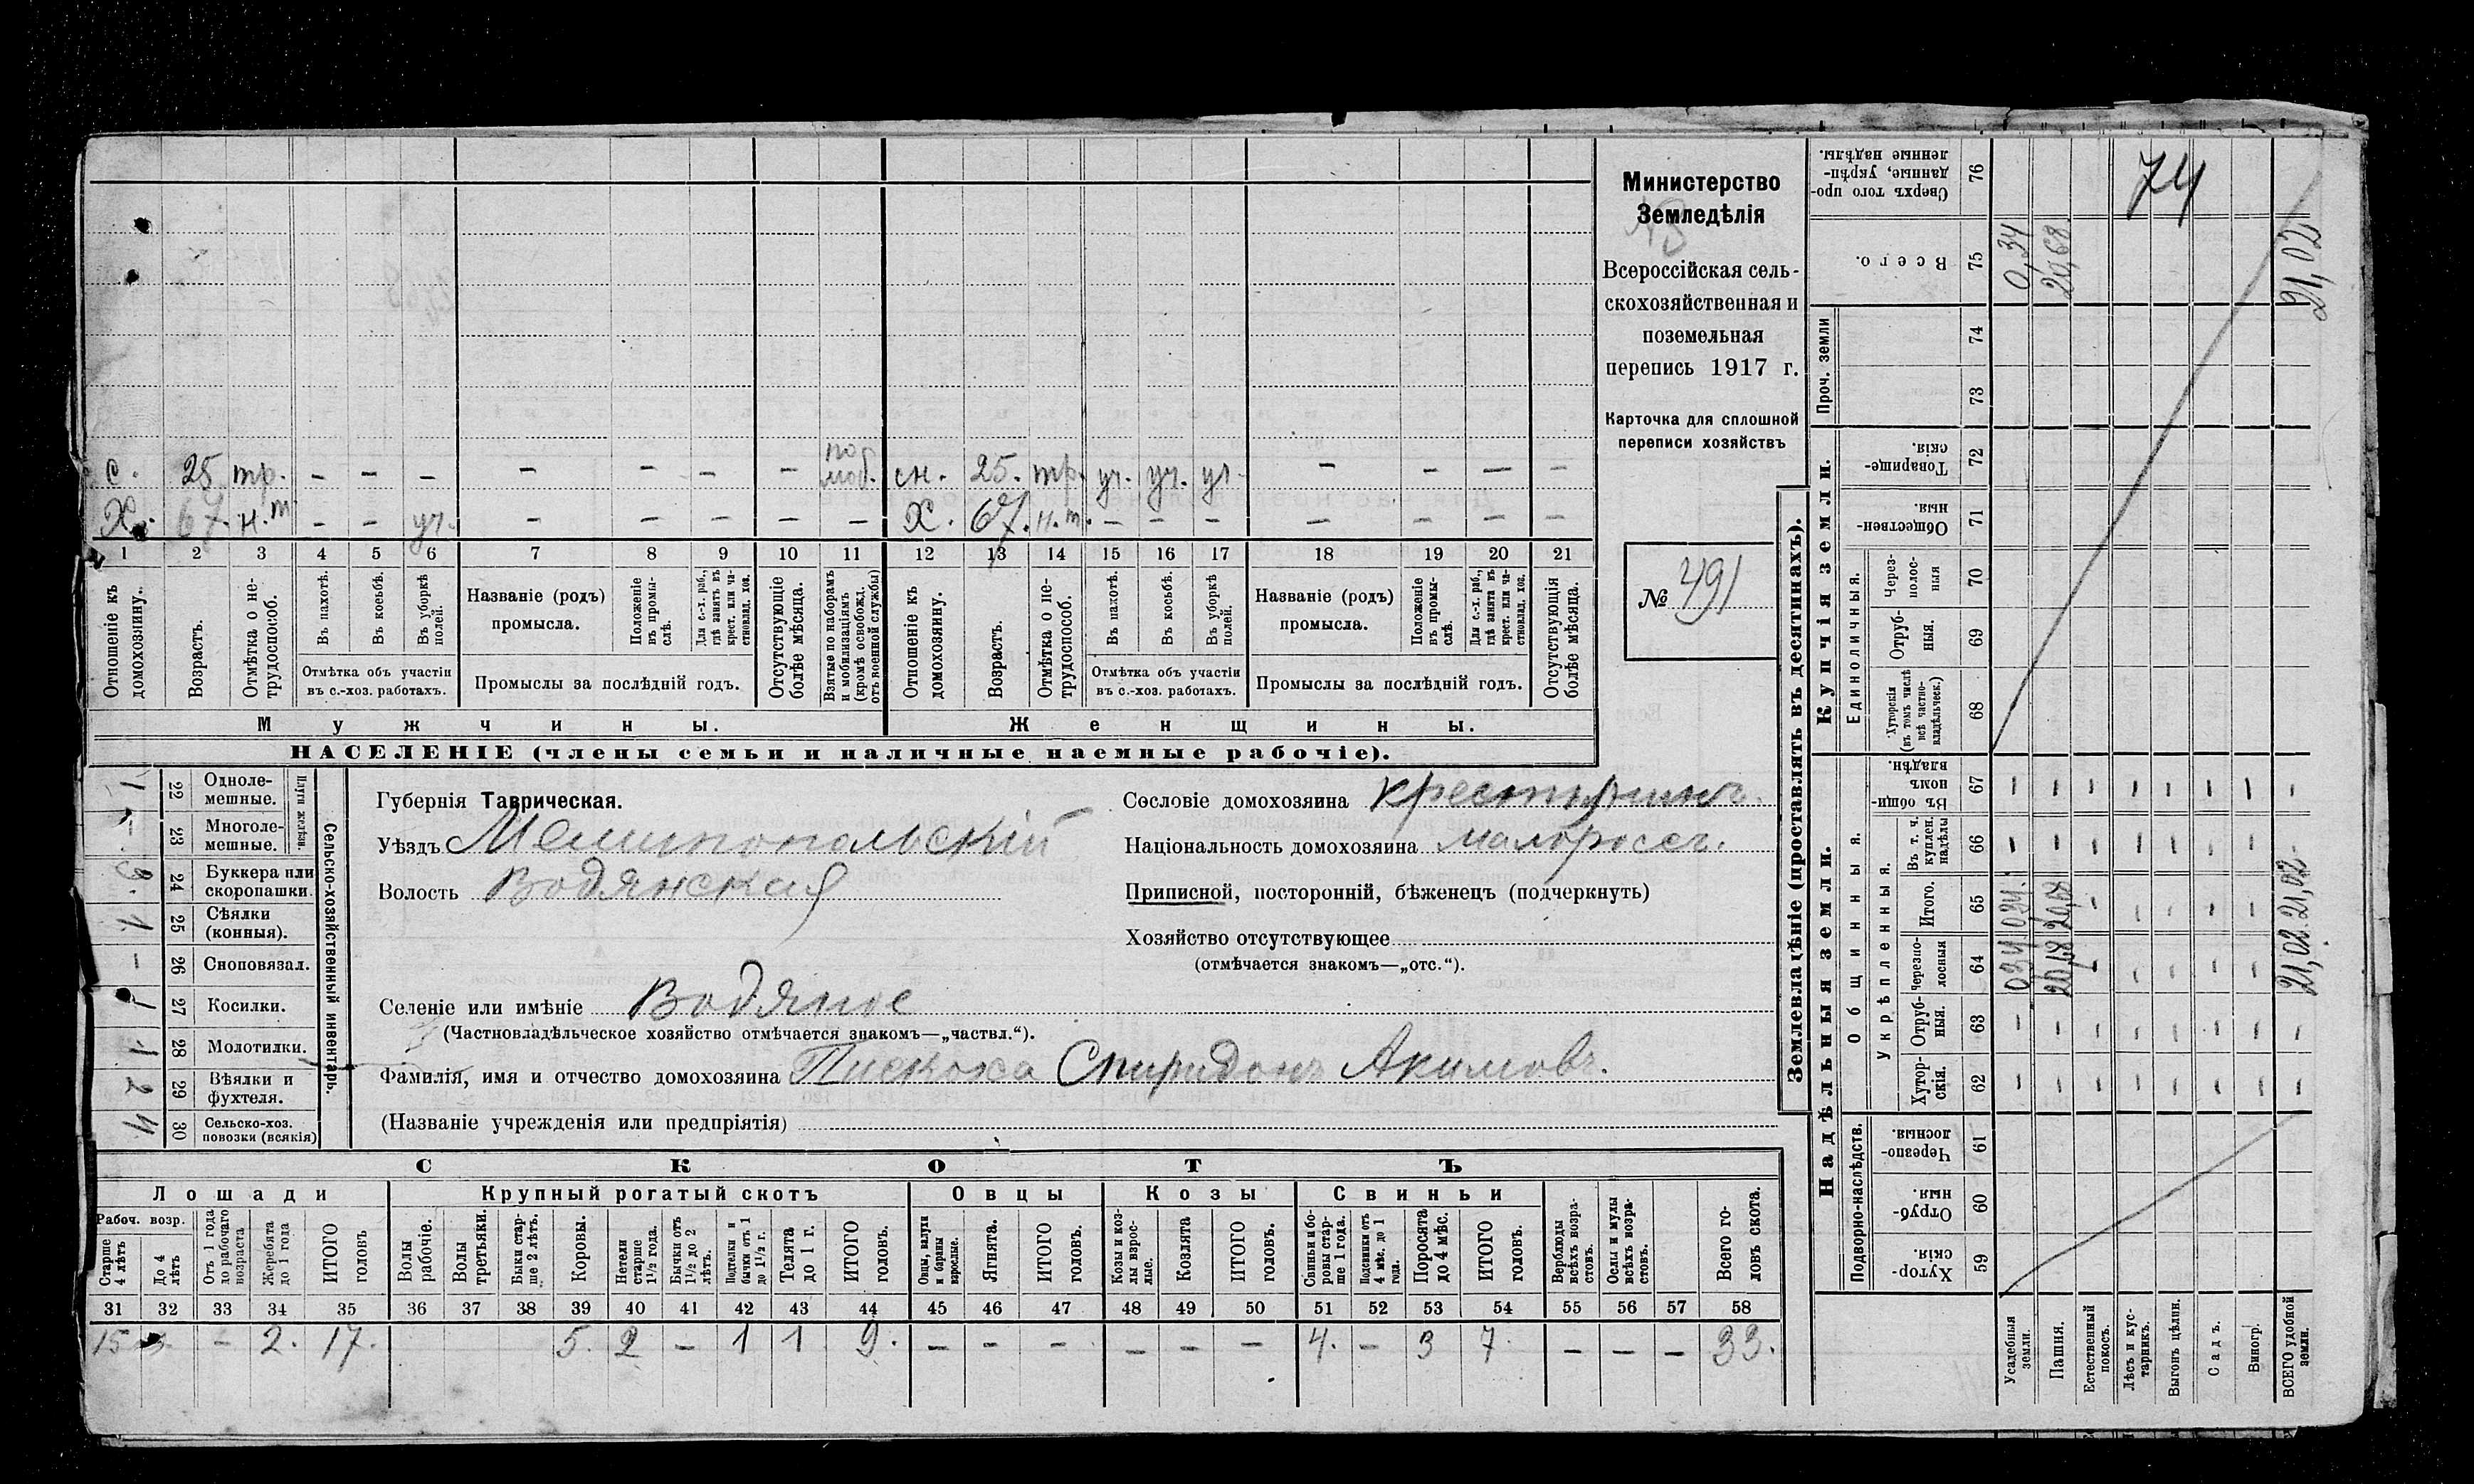 Министерство
Земледѣлія
Всероссійская сель-
скохозяйственная и
поземельная
перепись 1917 г.
Карточка для сплошной
переписи хозяйствъ
№ 491
с. 25 тр. – – – – – – – под моб. сн. 25. тр. уч. уч. уч. – – – –
Х. 67. н.т. – – уч. – – – – – Х. 67. н.т. – – – – – – –
1 2 3 4 5 6 7 8 9 10 11 12 13 14 15 16 17 18 19 20 21
Отношеніе къ домохозяину.
Возрастъ.
Отмѣтка о не-трудоспособ.
Въ пахотѣ.
Въ косьбѣ.
Въ уборкѣ полей.
Отмѣтка объ участіи въ с.-хоз. работахъ.
Названіе (родъ) промысла.
Положеніе въ промы-слѣ.
Для с.-х. раб., гдѣ занятъ въ крест. или ча-стновлад. хоз.
Промыслы за послѣдній годъ.
Отсутствующіе болѣе мѣсяца.
Взятые по наборамъ и мобилизаціямъ (кромѣ освобожд. отъ военной службы)
Отношеніе къ домохозяину.
Возрастъ.
Отмѣтка о не-трудоспособ.
Въ пахотѣ.
Въ косьбѣ.
Въ уборкѣ полей.
Отмѣтка объ участіи въ с.-хоз. работахъ.
Названіе (родъ) промысла.
Положеніе въ промы-слѣ.
Для с.-х. раб., гдѣ занята въ крест. или ча-стновлад. хоз.
Промыслы за послѣдній годъ.
Отсутствующія болѣе мѣсяца.
Мужчины. Женщины.
НАСЕЛЕНІЕ (члены семьи и наличные наемные рабочіе).
Сельско-хозяйственный инвентарь.
Плуги желѣзн.
1 22 Одноле-мешные.
– 23 Многоле-мешные.
3. 24 Буккера или скоропашки.
1. 25 Сѣялки (конныя).
– 26 Сноповязал.
1 27 Косилки.
1 28 Молотилки.
2 29 Вѣялки и фухтеля.
4 30 Сельско-хоз. повозки (всякія)
Губернія Таврическая.
Уѣздъ Мелитопольскій
Волость Водянская
Селеніе или имѣніе Водяное
(Частновладѣльческое хозяйство отмѣчается знакомъ—„частвл.“).
Фамилія, имя и отчество домохозяина Пискоха Спиридонъ Акимовъ.
(Названіе учрежденія или предпріятія)
Сословіе домохозяина крестьянинъ.
Національность домохозяина малороссъ.
Приписной, посторонній, бѣженецъ (подчеркнуть)
Хозяйство отсутствующее
(отмѣчается знакомъ—„отс.“).
СКОТЪ
Лошади Крупный рогатый скотъ Овцы Козы Свиньи
Рабоч. возр.
Старше 4 лѣтъ
До 4 лѣтъ
Отъ 1 года до рабочаго возраста
Жеребята до 1 года
ИТОГО головъ
Волы рабочіе.
Волы третьяки.
Быки стар-ше 2 лѣтъ.
Коровы.
Нетели старше 1½ года.
Бычки отъ 1½ до 2 лѣтъ.
Подтелки и бычки отъ 1 до 1½ г.
Телята до 1 г.
ИТОГО головъ.
Овцы, валухи и бараны взрослые.
Ягнята.
ИТОГО головъ.
Козы и коз-лы взрос-лые.
Козлята
ИТОГО головъ.
Свиньи и бо-ровы стар-ше 1 года.
Подсвинки отъ 4 мѣс. до 1 года.
Поросята до 4 мѣс.
ИТОГО головъ.
Верблюды всѣхъ возра-стовъ.
Ослы и мулы всѣхъ возра-стовъ.
Всего го-ловъ скота.
31 32 33 34 35 36 37 38 39 40 41 42 43 44 45 46 47 48 49 50 51 52 53 54 55 56 57 58
15 – 2. 17. 5. 2 – 1 1 9. – – – – – – 4. – 3 7 – – – 33.
Землевладѣніе (проставлять въ десятинахъ).
Надѣльныя земли. Купчія земли. Проч. земли
Подворно-наслѣдств. Общинныя. Укрѣпленныя. Единоличныя.
Хутор-скія. 59
Отруб-ныя. 60
Черезпо-лосныя. 61
Хутор-скія. 62
Отруб-ныя. 63
Черезпо-лосныя 64
Итого. 65
Въ т. ч. куплен. надѣлы 66
Въ общи-номъ владѣн. 67
Хуторскія (въ томъ числѣ всѣ частно-владѣльческ.) 68
Отруб-ныя. 69
Через-полос-ныя 70
Обществен-ныя. 71
Товарище-скія. 72
73
74
Всего. 75
Сверхъ того про-данные, укрѣп-ленные надѣлы. 76
Усадебныя земли. – – 034 034. – – 0,34
Пашня. – – 20,68 20,68 – – 20,68.
Естественный покосъ.
Лѣсъ и кус-тарникъ.
Выгонъ цѣлин.
Садъ.
Виногр.
ВСЕГО удобной земли. – – 21,02. 21,02 – 21,02
74